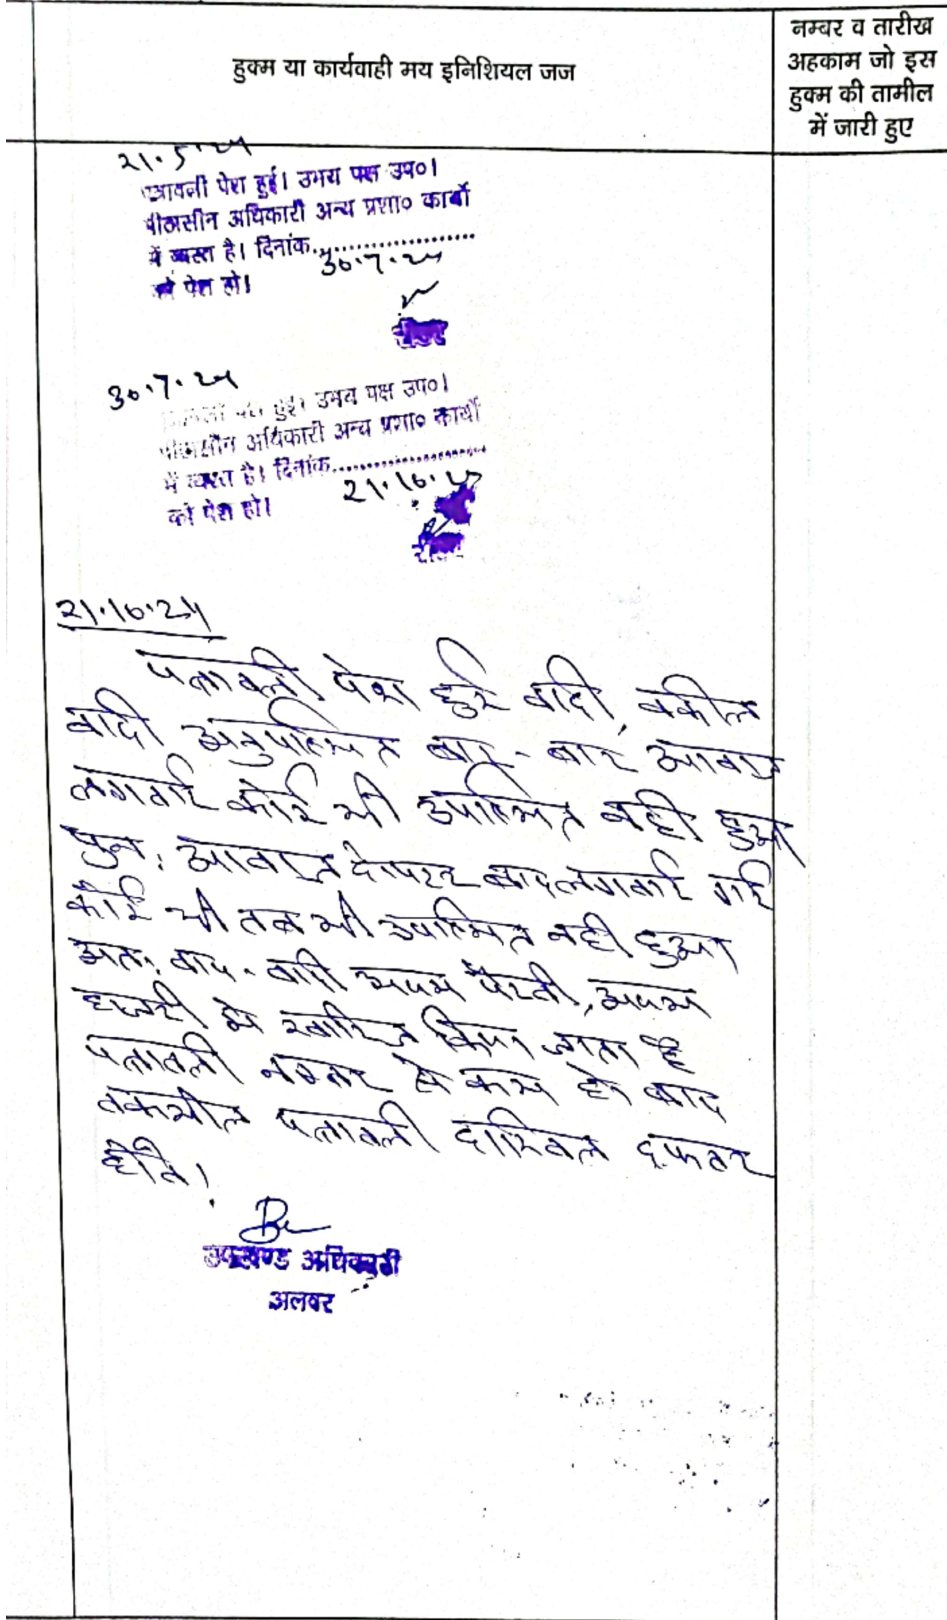 हुक्म या कार्यवाही मय इनिशियल जज
नम्बर व तारीख
अहकाम जो इस
हुक्म की तामील
में जारी हुए
21.5.24
पत्रावली पेश हुई। उभय पक्ष उप०।
पीठासीन अधिकारी अन्य प्रशा० कार्यो
में व्यस्त है। दिनांक....................
30.7.24
को पेश हो।
30.7.24
पेश हुई। उभय पक्ष उप०।
पीठासीन अधिकारी अन्य प्रशा० कार्यो
में व्यस्त है। दिनांक....................
21.10.24
को पेश हो।
21.10.24
पत्रावली पेश हुई वादी, वकील
वादी अनुपस्थित बार-बार आवाज
लगवाई कोई भी उपस्थित नही हुआ
पुन: आवाज दोपहर बाद लगवाई गई
कोई भी तब भी उपस्थित नही हुआ
अत: वाद वादी अदम पैरवी, अदम
हाजरी मे खारिज किया जाता है
पत्रावली नम्बर से कम हो बाद
तकमील पत्रावली दाखिल दफ्तर
होवे।
उपखण्ड अधिकारी
अलवर